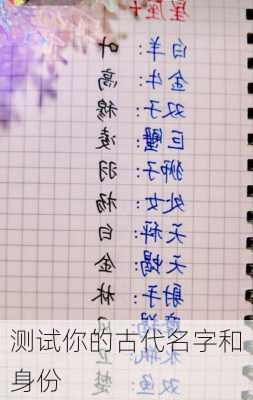 星座+
白羊：叶
金牛：高
双子：穆
巨蟹：凌
狮子：羽
处女：杨
天秤：白
天蝎：金
射手：林
水瓶：
双鱼：楚
测试你的古代名字和
身份